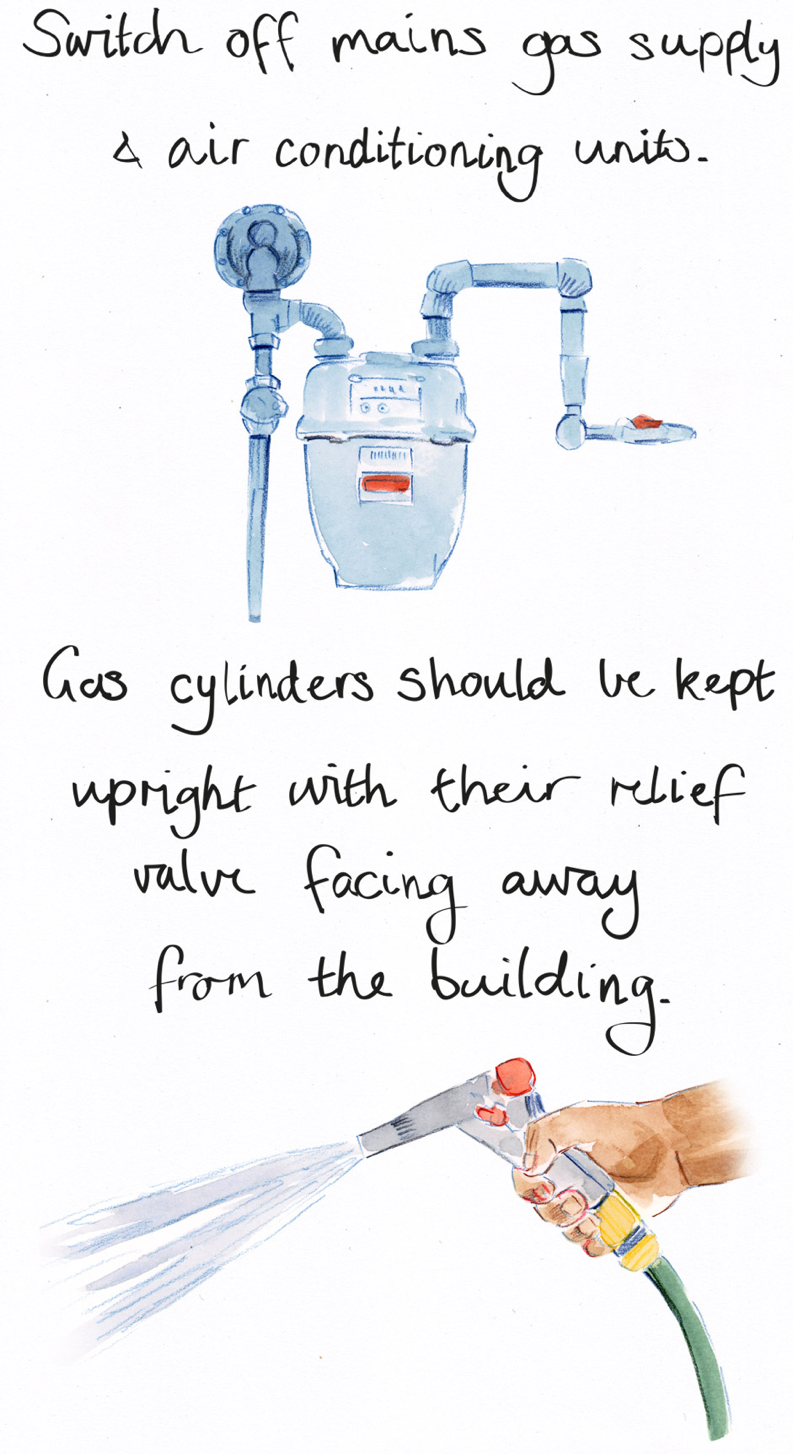 Switch off mains gas supply
& air conditioning units.
Gas cylinders should be kept
upright with their relief
valve facing away
from the building.